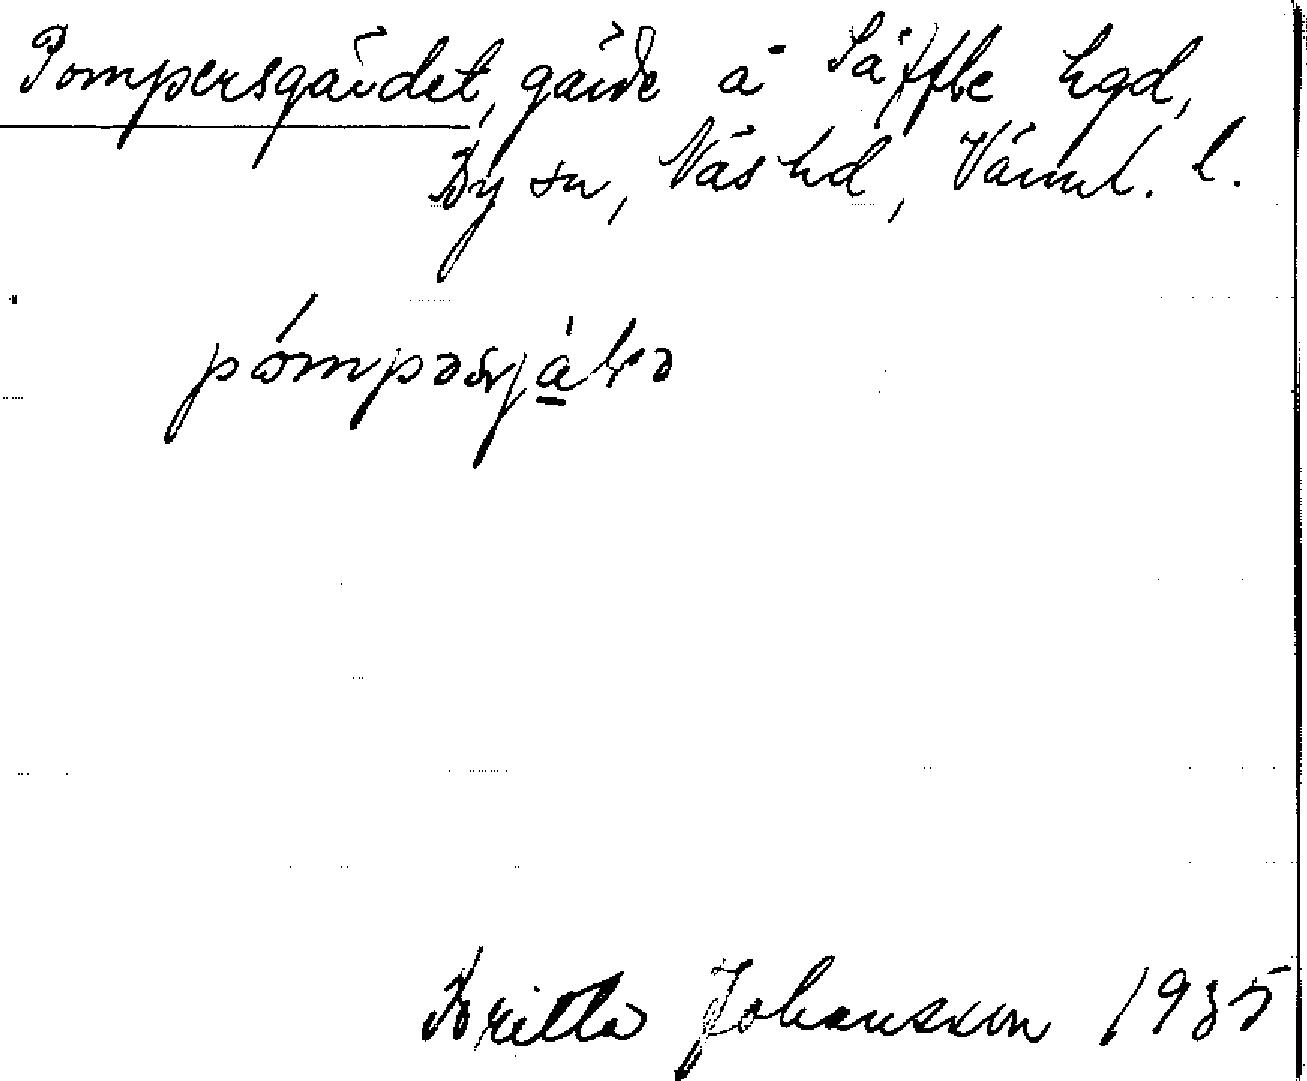 Pompersgärdet, gärde å Säffle hgd,
By sn, Näs hd, Värml. l.
Britta Johansson 1935